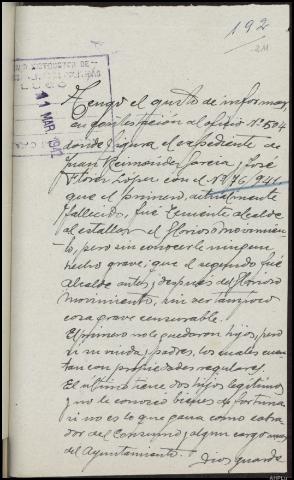 192
211
11 MAR. 1942
LUGO
Tengo el gusto de informar
en contestación al oficio Nº 504
donde figura el expediente de
Juan Reimundez Garcia y José
Flores Lopez con el Nº 76 941
que el primero, actualmente
fallecido, fue Teniente alcalde
al estallar el Glorioso movimien-
to, pero sin conocerle ningun
hecho grave; que el segundo fué
alcalde antes, despues del Glorioso
Movimiento, sin ser tampoco
cosa grave censurable.
El primero no le quedaron hijos, pero
si su viuda, padres, los cuales cuen-
tan con propiedades regulares.
El último tiene dos hijos legitimos,
y no le conozco bienes de fortuna
si no es lo que gana como cobra-
dor del Consumo y algun cargo
del Ayuntamiento.
Dios guarde